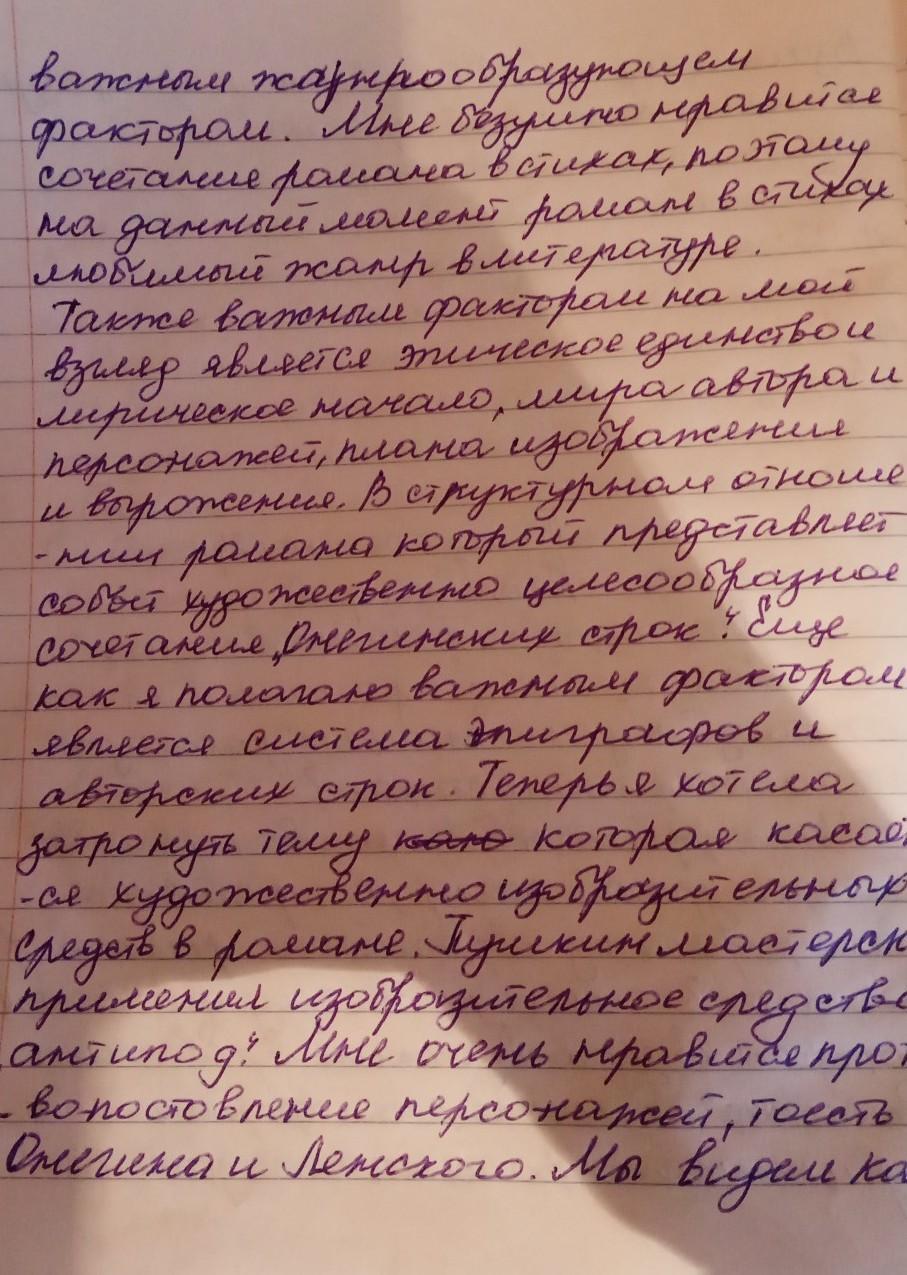 важным жаунрообразующем
фактором. Мне безумно нравится
сочетание романа в стихах, поэтому
на данный момент роман в стихах
любимый жанр в литературе.
Также важным фактором на мой
взгляд является эпическое единство и
лирическое начало, мира автора и
персонажей, плана изображения
и вырожения. В структурном отноше
-нии романа который представляет
собой художественно целесообразное
сочетания „Онегинских строк“. Еще
как я полагаю важным фактором
является система эпиграфов и
авторских строк. Теперь я хотела
затронуть тему которая касает
-ся художественно изобразительных
средств в романе. Пушкин мастерск
применил изобразительное средство
„антипод“. Мне очень нравится прот
-вопостовление персонажей, тоесть
Онегина и Ленского. Мы видем ка